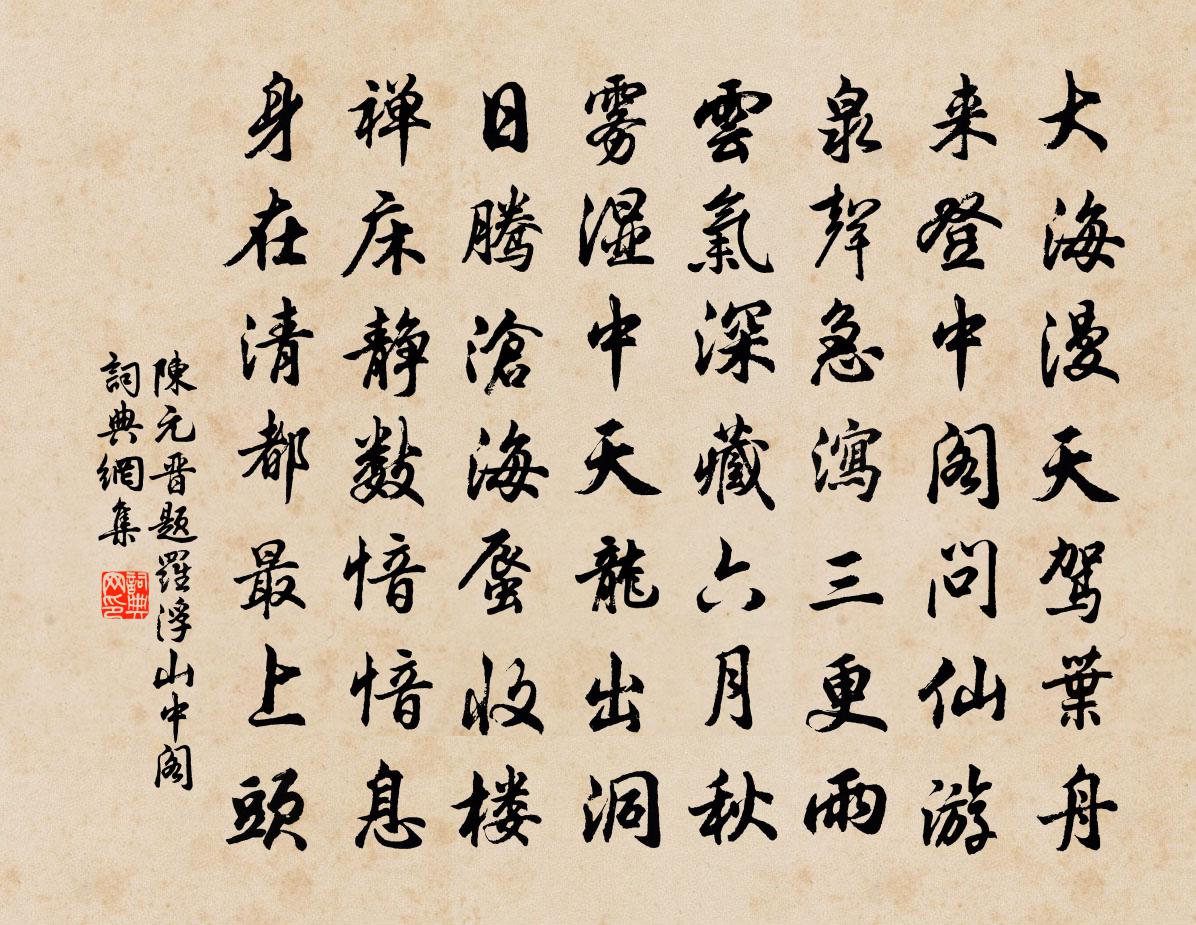 大海漫天驾葉舟
来登中阁问仙游
泉聲急瀉三更雨
雲氣深藏六月秋
雾湿中天龍出洞
日腾滄海蜃收楼
禅床静數愔愔息
身在清都最上頭
陳元晋题羅浮山中阁
詞典網集
詞典
网印